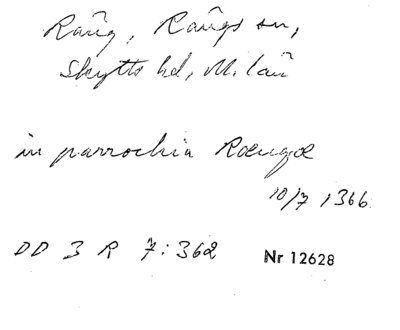 Räng, Rängs sn,
Skytts hd, M.län
in parrochia Rænge
10/7 1366
DD 3 R 7:362 Nr 12628